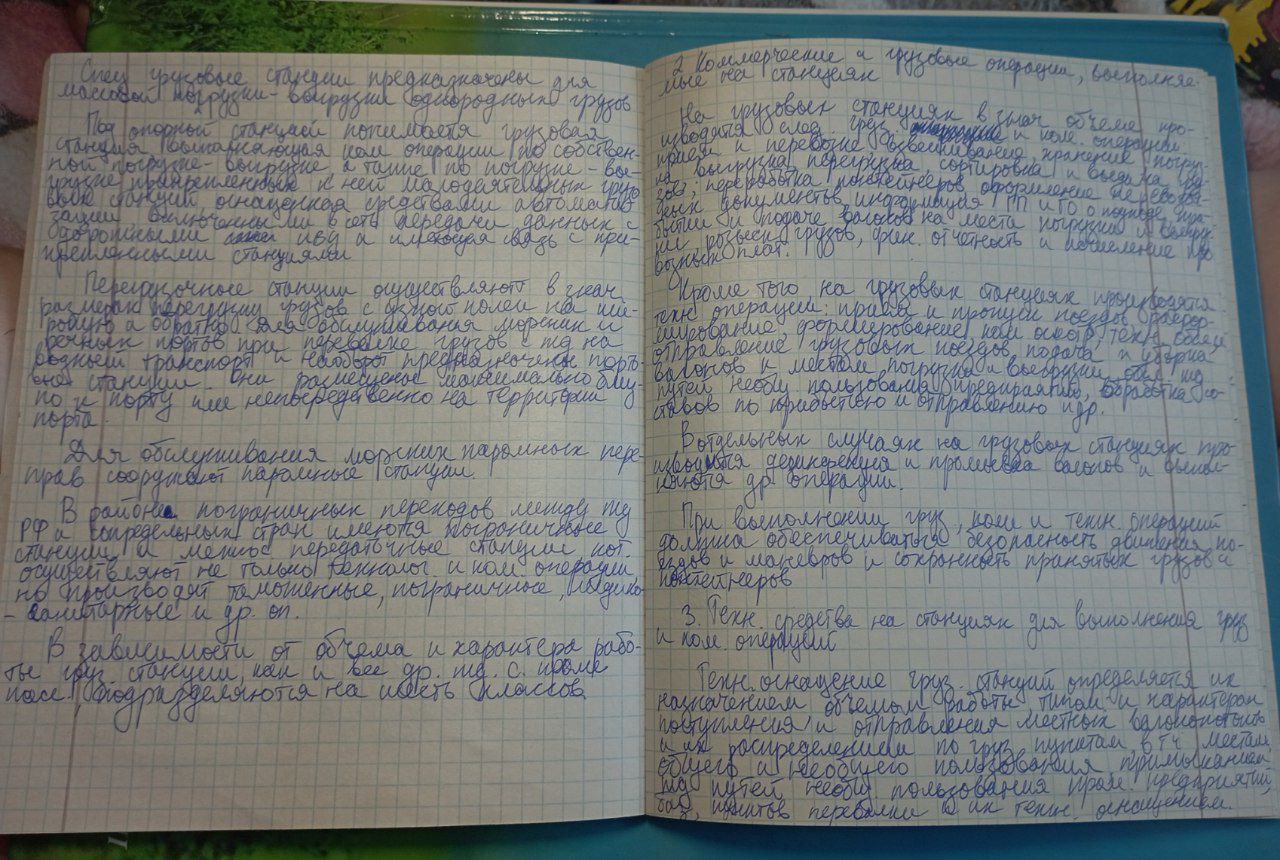 Спец грузовые станции предназначены для
массовой погрузки-выгрузки однородных грузов
Под опорной станцией понимается грузовая
станция выполняющая ком операции по собствен-
ной погрузке-выгрузке, а также по погрузке-вы-
грузке прикрепленных к ней малодеятельных грузо
вых станций оснащенная средствами автомати
зации включенными в сеть передачи данных с
дорожными ИВЦ и имеющая связь с при-
крепленными станциями
Перегрузочные станции осуществляют в знач
размерах перегрузки грузов с узкой колеи на ши-
рокую и обратно. Для обслуживания морских и
речных портов при перевалке грузов с жд на
водный транспорт и наоборот предназначены порто
вые станции. ни размещены максимально близ
ко к порту или непосредственно на территории
порта.
Для обслуживания морских паромных пере
прав сооружают паромные станции.
В районе пограничных переходов между жд
РФ и сопредельных стран имеются пограничные
станции, и межгос передаточные станции кот
осуществляют не только технолог и ком. операции
но производят таможенные, пограничные, медико
-санитарные и др. оп.
В зависимости от объема и характера рабо-
ты груз. станции, как и все др. жд. с. кроме
пасс. подразделяются на шесть классов
2 Коммерческие и грузовые операции, выполняе-
мые на станциях
На грузовых станциях в знач объеме про-
изводятся след. груз и ком. операции:
прием к перевозке взвешивание, хранение погруз-
ка выгрузка, перегрузка, сортировка и выдача гру-
зов, переработка контейнеров оформление перевоз
ных документов, информация ГП и ГО о подходе, при-
бытии и подаче вагонов на места погрузки и выгруз
ки розыск грузов, фин. отчетность и исчисление про
возных плат.
Кроме того на грузовых станциях производятся
техн. операции: прием и пропуск поезды, расфор-
мирование формирование, ком осмотр, техн. обсл и
отправление грузовых поездов подача и уборка
вагонов к местам погрузки и выгрузки, обсл жд
путей необщ пользования предприятий, обработка со-
ставов по прибытию и отправлению и др.
В отдельных случаях на грузовых станциях про-
изводится дезинфекция и промывка вагонов и выпол-
няются др операции.
При выполнении груз, ком и техн. операций
должна обеспечиваться безопасность движения по-
ездов и маневров и сохранность принятых грузов и
контейнеров
3. Техн. средства на станциях для выполнения груз
и ком. операций
Техн. оснащение груз. станций определяется их
назначением объемом работы типом и характером
поступления и отправления местных вагонопотоков
и их распределением по груз. пунктам, в т ч местам
общего и необщего пользования примыканием
жд путей необщ. пользования пром. предприятий,
баз, пунктов перевалки и их техн. оснащением.